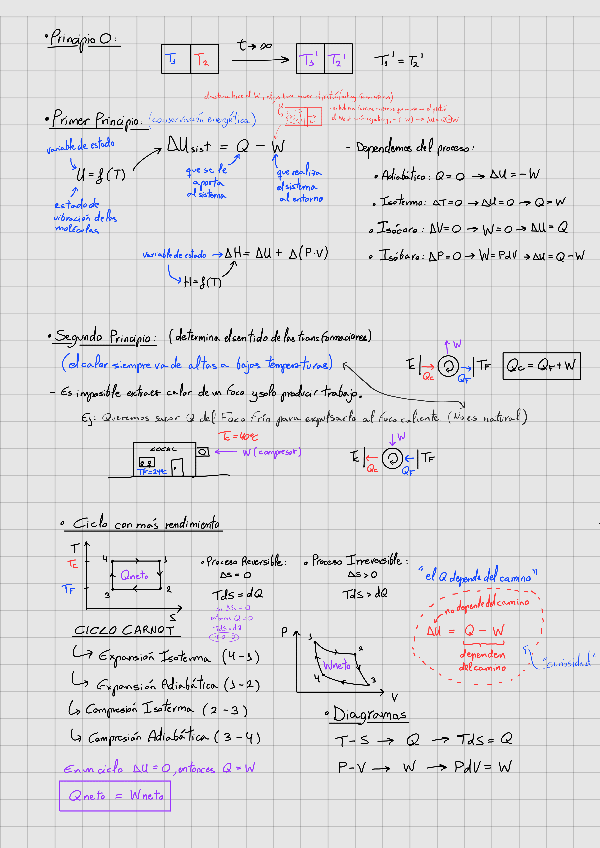 • Principio 0:
T₁ T₂
t → ∞
T₁' T₂'
T₁' = T₂'
• Primer Principio: (conservación energética)
variable de estado
U = f(T)
estado de
vibración de las
moléculas
ΔUsist = Q - W
que se le
aporta
al sistema
que realiza
el sistema
al entorno
variable de estado → ΔH = ΔU + Δ(P·V)
H = f(T)
- Dependemos del proceso:
• Adiabático: Q = 0 → ΔU = -W
• Isotermo: ΔT = 0 → ΔU = 0 → Q = W
• Isócoro: ΔV = 0 → W = 0 → ΔU = Q
• Isóbaro: ΔP = 0 → W = PdV → ΔU = Q - W
• Segundo Principio: (determina el sentido de las transformaciones)
(el calor siempre va de altas a bajas temperaturas)
Tc Qc W QF TF
Qc = QF + W
- Es imposible extraer calor de un foco y solo producir trabajo.
Ej: Queremos sacar Q del Foco Frío para expulsarlo al foco caliente (No es natural)
Tc = 40°C
LOCAL
TF = 24°C
W (compresor)
Tc Qc W QF TF
• Ciclo con más rendimiento
T
Tc
TF
4 1
Qneto
3 2
S
• Proceso Reversible:
ΔS = 0
TdS = dQ
• Proceso Irreversible:
ΔS > 0
TdS > dQ
"el Q depende del camino"
no depende del camino
ΔU = Q - W
dependen
del camino
"curiosidad"
CICLO CARNOT
↳ Expansión Isoterma (4-1)
↳ Expansión Adiabática (1-2)
↳ Compresión Isoterma (2-3)
↳ Compresión Adiabática (3-4)
P
1
2
Wneto
4
3
V
En un ciclo ΔU = 0, entonces Q = W
Qneto = Wneto
• Diagramas
T-S → Q → TdS = Q
P-V → W → PdV = W